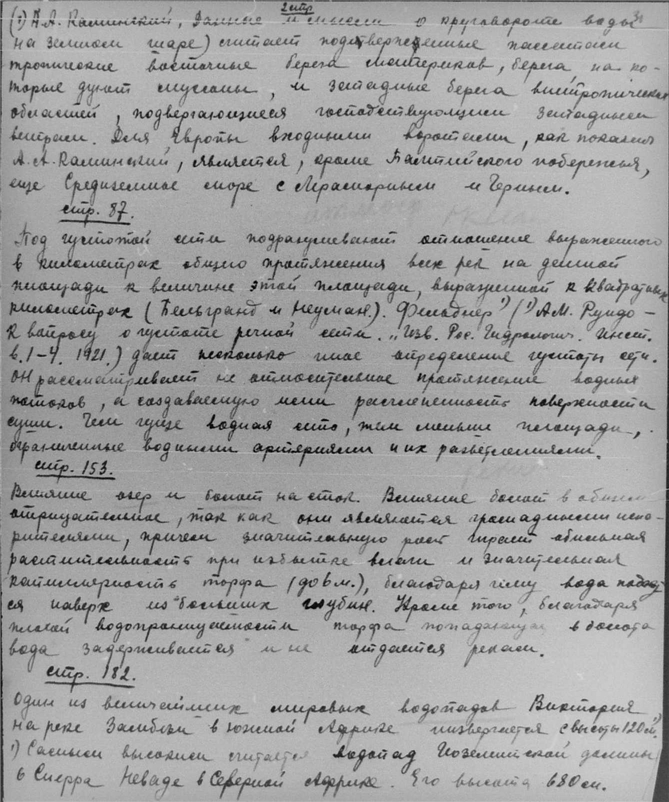 2 стр
(²) А.А. Каминский, Данные и мысли о круговороте воды
на земном шаре) считает подтвержденные пассатами
тропические восточные берега материков, берега на ко-
торые дуют муссоны, и западные берега внетропических
областей, подвергающиеся господствующим западным
ветрам. Для Европы входными воротами, как показал
А.А. Каминский, является, кроме Балтийского побережья,
еще Средиземное море с Мраморным и Черным.
стр. 87.
Под густотой сети подразумевают отношение выраженного
в километрах общего протяжения всех рек на данной
площади к величине этой площади, выраженной к квадратных
километрах (Бельгранд и Неуман). Фельднер¹) (¹) А.М. Рундо -
К вопросу о густоте речной сети. „Изв. Рос. Гидрологич. Инст.
в. 1-4. 1921.) дает несколько иное определение густоты сети.
Он рассматривает не относительное протяжение водных
потоков, а создаваемую ими расчлененность поверхности
суши. Чем гуще водная сеть, тем меньше площади,
ограниченные водными артериями и их разветвлениями.
стр. 153.
Влияние озер и болот на сток. Влияние болот в общем
отрицательное, так как они являются громадными испа-
рителями, причем значительную роль играет обильная
растительность при избытке влаги и значительная
капиллярность торфа (до 6 м.), благодаря чему вода подает
ся наверх из больших глубин. Кроме того, благодаря
плохой водопроницаемости торфа попадающая в болота
вода задерживается и не отдается рекам.
стр. 182.
Один из величайших мировых водопадов Виктория
на реке Замбези в южной Африке низвергается с высоты 120 м.¹)
¹) Самым высоким считается водопад Иоземитской долины
в Сиерра Неваде в Северной Африке. Его высота 680 м.